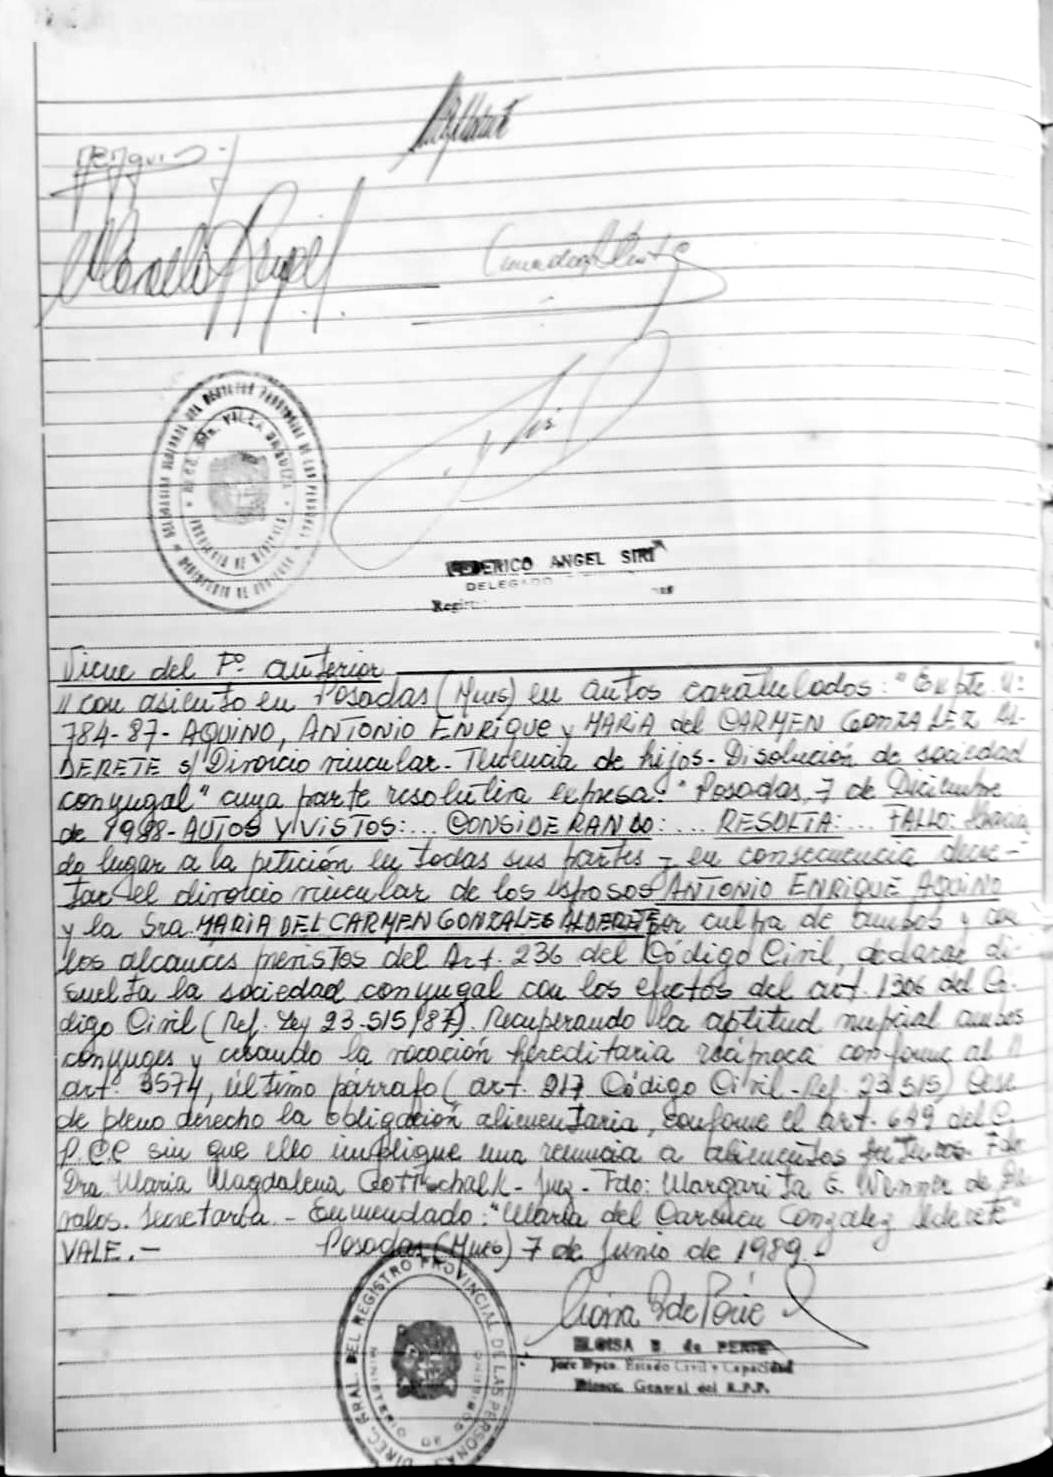 FEDERICO ANGEL SIRI
DELEGADO
Viene del Fº. anterior
// con asiento en Posadas (Mnes) en autos caratulados: "Expte. Nº
784-87- AQUINO, ANTONIO ENRIQUE y MARIA del CARMEN GONZALEZ AL-
DERETE s/ Divorcio vincular - Tenencia de hijos - Disolución de sociedad
conyugal" cuya parte resolutiva expresa: "Posadas, 7 de Diciembre
de 1988- AUTOS Y VISTOS:... CONSIDERANDO: ... RESULTA: ... FALLO: Hacien
do lugar a la petición en todas sus partes y en consecuencia decre-
tar el divorcio vincular de los esposos ANTONIO ENRIQUE AQUINO
y la Sra MARIA DEL CARMEN GONZALES ALDERETE por culpa de ambos y con
los alcances previstos del Art. 236 del Código Civil, declarar di-
suelta la sociedad conyugal con los efectos del art. 1306 del Có-
digo Civil (Ref. Ley 23.515/87). Recuperando la aptitud nupcial ambos
conyuges y cesando la vocación hereditaria recíproca conforme al //
art. 3574, último párrafo (art. 217 Código Civil - Ref. 23.515) Cese
de pleno derecho la obligación alimentaria, conforme el art. 649 del C.
P.C.C sin que ello implique una renuncia a alimentos futuros. Fdo
Dra. Maria Magdalena Gottschalk - Juez - Fdo: Margarita E. de
valos. Secretaria - Enmendado: "Maria del Carmen Gonzalez Alderete"
VALE.- Posadas (Mnes) 7 de Junio de 1989.-
DIREC. GRAL. DEL REGISTRO PROVINCIAL DE LAS PERSONAS
ELOISA B. de PERIE
Jefe Dpto. Estado Civil y Capacidad
Direcc. General del R.P.P.